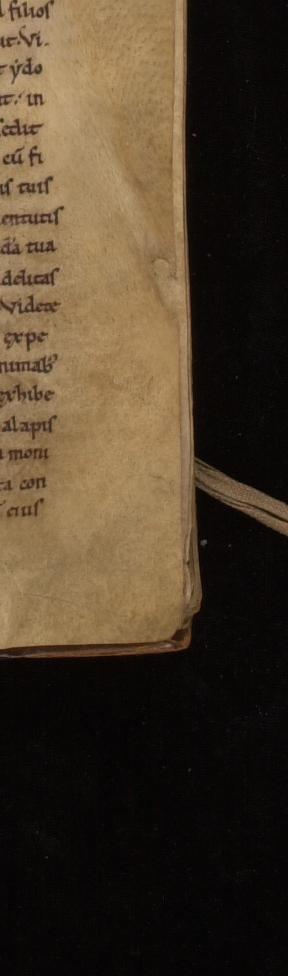 filios
ut. Vi.
t ẏdo
it: in
sedit
eū fi
is tuis
entutis
da tua
delitas
Videte
expe
numab᾽
exhibe
alapis
moni
ta con
eius